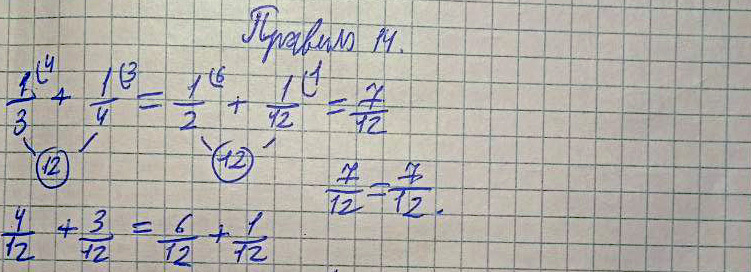 Правило 14.
1/3 (4 + 1/4 (3 = 1/2 (6 + 1/12 (1 = 7/12
12 12
7/12 = 7/12.
4/12 + 3/12 = 6/12 + 1/12